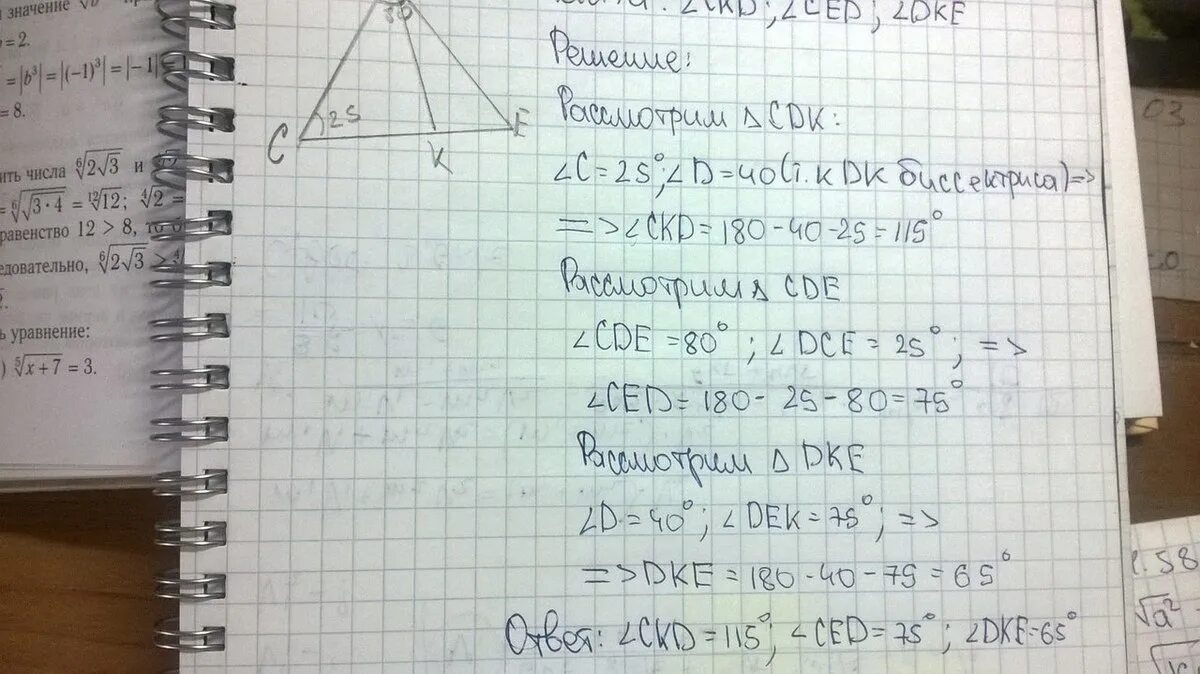 значение
= 2.
= |b³| = |(-1)³| = |-1|
= 8.
ить числа ⁶√2√3 и
= ⁶√√3·4 = ¹²√12; ⁴√2 =
равенство 12 > 8, то
едовательно, ⁶√2√3 >
ь уравнение:
) ⁵√x+7 = 3.
C
25
K
E
∠CKD; ∠CED; ∠DKE
Решение:
Рассмотрим △CDK:
∠C=25°; ∠D=40(т.к DK биссектриса)=>
=>∠CKD=180-40-25=115°
Рассмотрим △ CDE
∠CDE=80°; ∠DCE=25°; =>
∠CED=180-25-80=75°
Рассмотрим △ DKE
∠D=40°; ∠DEK=75°; =>
=>DKE=180-40-75=65°
Ответ: ∠CKD=115°; ∠CED=75°; ∠DKE=65°
03
с.58
√a²